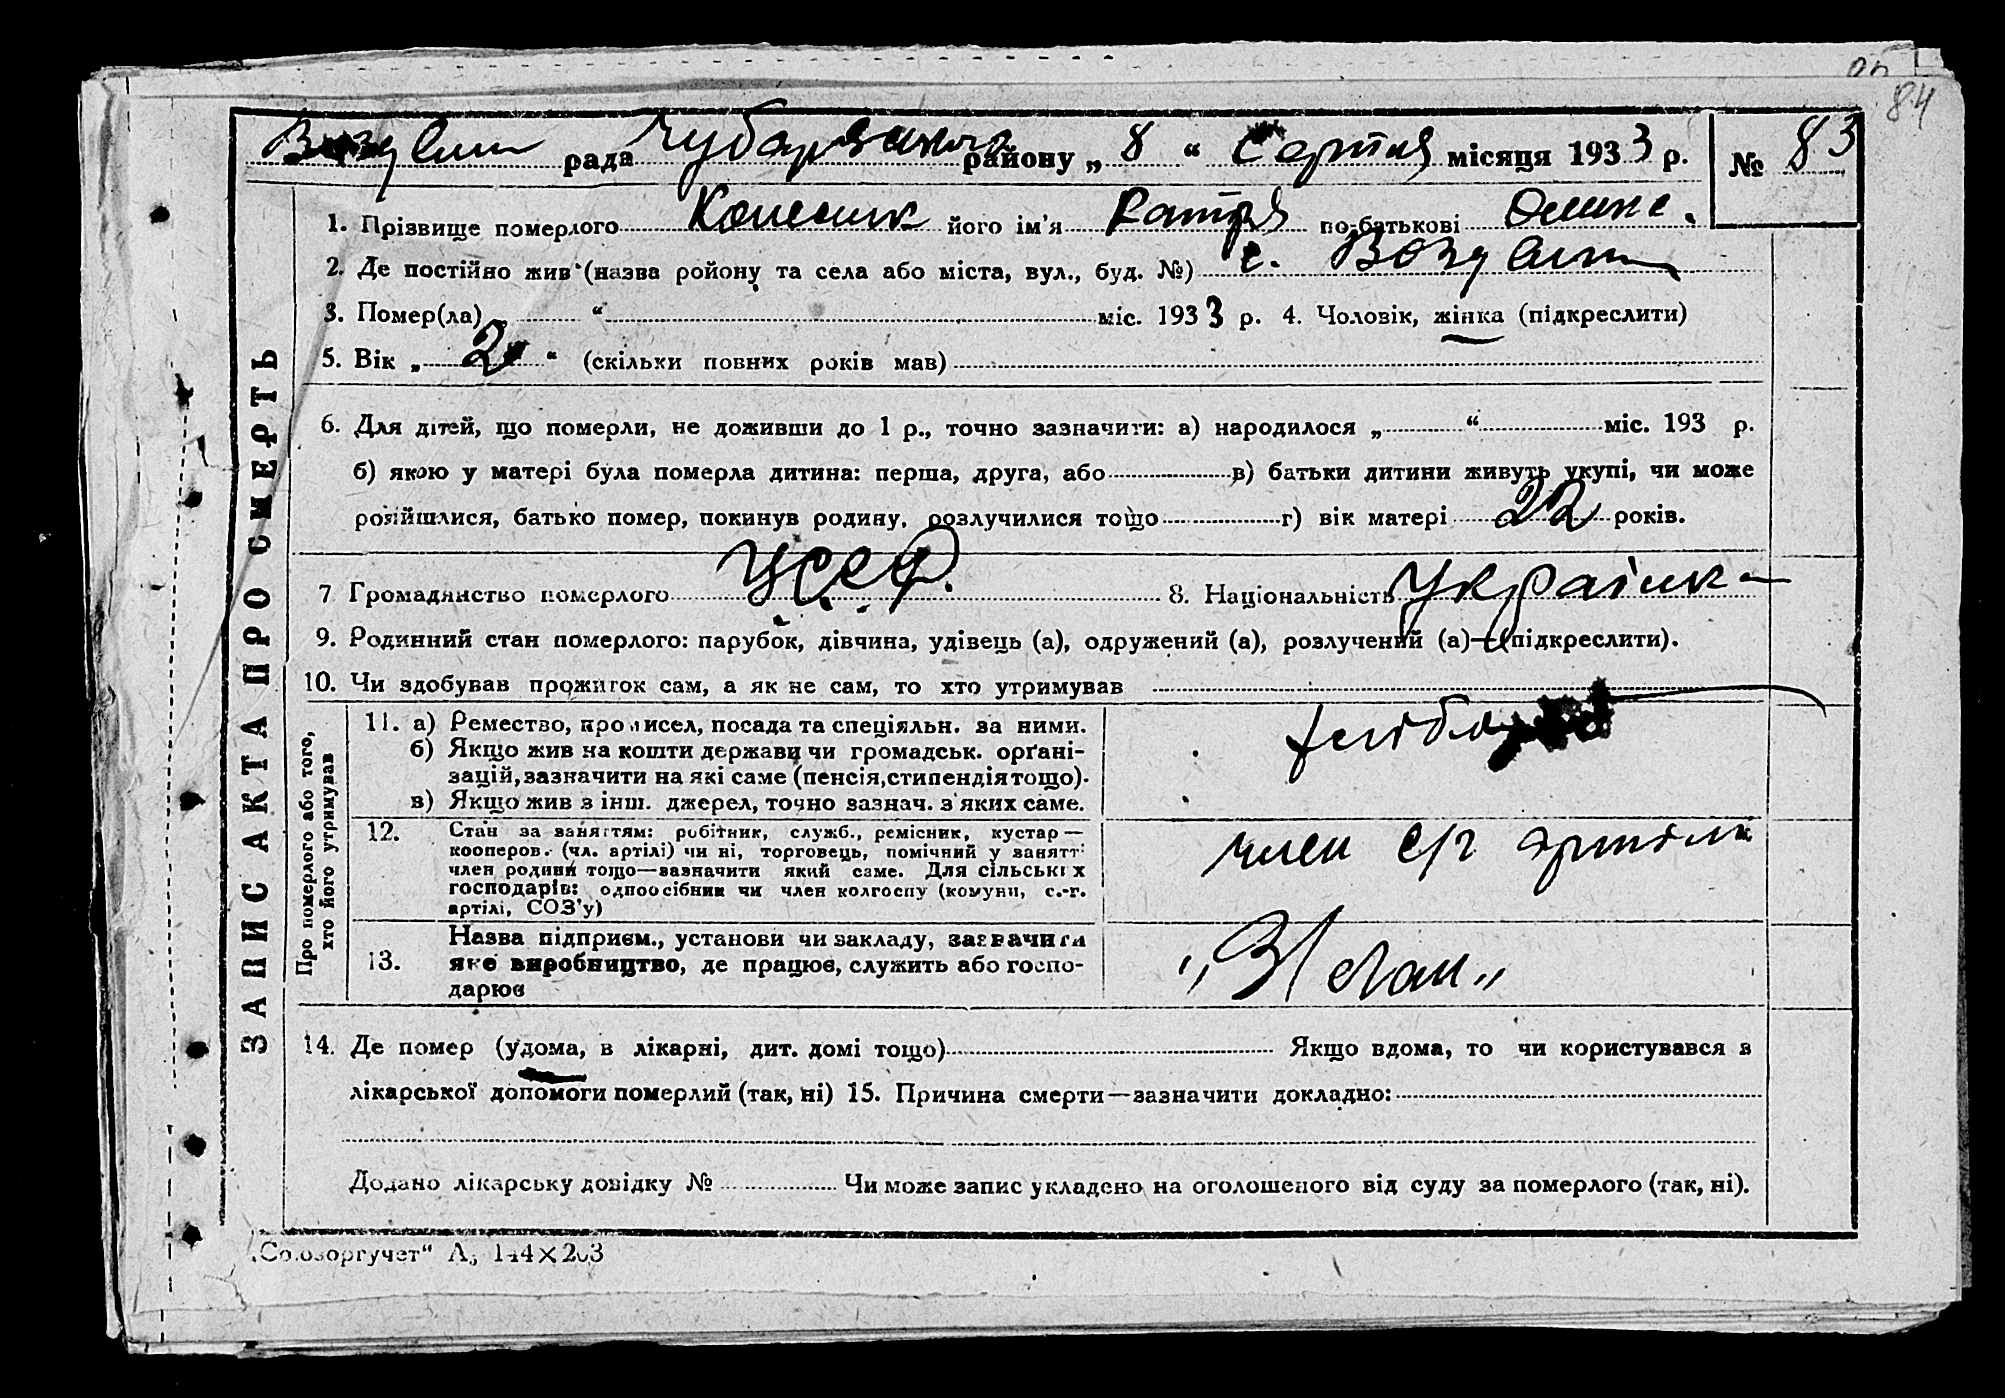 84
рада Чубарівського району „ 8 “ Серпня місяця 1933 р. № 83
1. Прізвище померлого Колесник його ім'я Катря по-батькові
2. Де постійно жив (назва ройону та села або міста, вул., буд. №) с. Воздвиж
3. Помер(ла) “ міс. 1933 р. 4. Чоловік, жінка (підкреслити)
5. Вік „ 2 “ (скільки повних років мав)
6. Для дітей, що померли, не доживши до 1 р., точно зазначити: а) народилося „ “ міс. 193 р.
б) якою у матері була померла дитина: перша, друга, або в) батьки дитини живуть укупі, чи може
розійшлися, батько помер, покинув родину, розлучилися тощо г) вік матері 22 років.
7 Громадянство померлого УССР. 8. Національність Українка
9. Родинний стан померлого: парубок, дівчина, удівець (а), одружений (а), розлучений (а)—(підкреслити).
10. Чи здобував прожиток сам, а як не сам, то хто утримував
ЗАПИС АКТА ПРО СМЕРТЬ
Про померлого або того, хто його утримував
11. а) Ремество, промисел, посада та спеціяльн. за ними.
б) Якщо жив на кошти держави чи громадськ. орґані-
зацій, зазначити на які саме (пенсія, стипендія тощо).
в) Якщо жив з інш. джерел, точно зазнач. з яких саме.
хлібороб
12. Стан за заняттям: робітник, служб., ремісник, кустар—
кооперов. (чл. артілі) чи ні, торговець, помічний у занятті
член родини тощо—зазначити який саме. Для сільських
господарів: одноосібник чи член колгоспу (комуни, с.-г.
артілі, СОЗ'у)
член с/г артіли
13. Назва підприєм., установи чи закладу, зазначити
яке виробництво, де працює, служить або госпо-
дарює
14. Де помер (удома, в лікарні, дит. домі тощо) Якщо вдома, то чи користувався з
лікарської допомоги померлий (так, ні) 15. Причина смерти—зазначити докладно:
Додано лікарську довідку № Чи може запис укладено на оголошеного від суду за померлого (так, ні).
„Союзоргучет“ А5 144×203